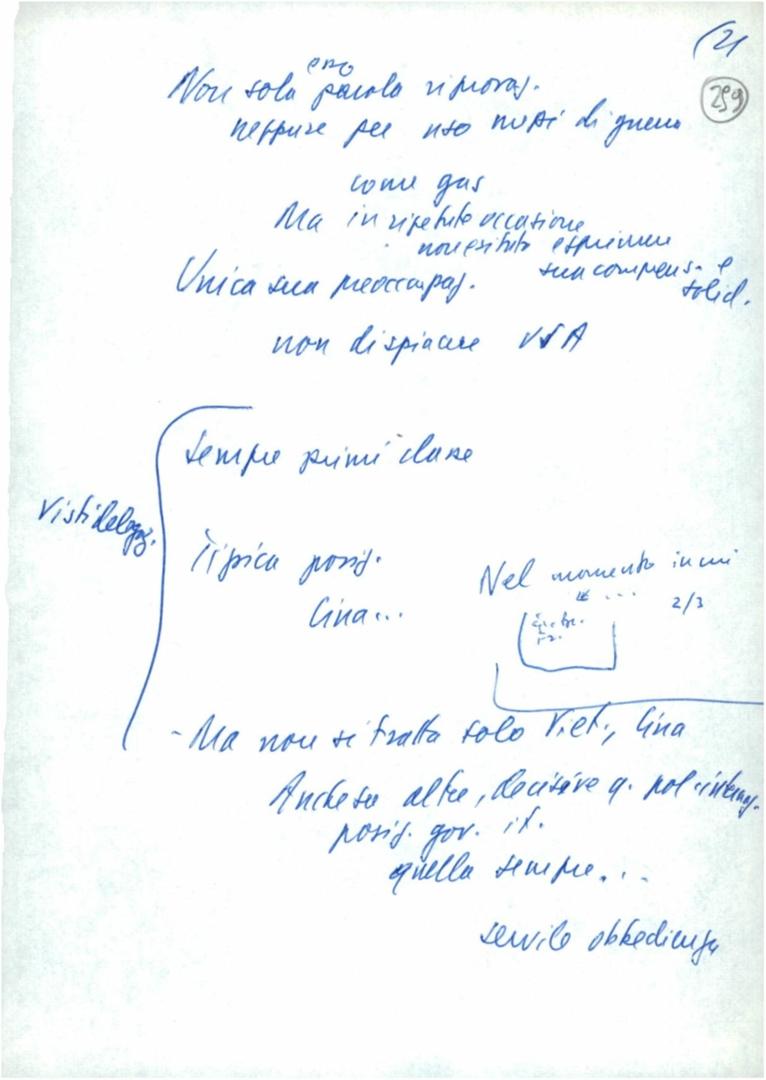 (21
259
Non sola parola riprovaz.
neppure per uso mezzi di guerra
come gas
Ma in ripetute occasione
non esitato esprimere
sua comprens. e
solid.
Unica sua preoccupaz.
non dispiacere USA
sempre primi classe
Visti delegaz.
Tipica posiz.
Cina...
Nel momento in cui
... 2/3
- Ma non si tratta solo Viet., Cina
Anche su altre, decisive q. pol. internaz.
posiz. gov. it.
quella sempre...
servile obbedienza